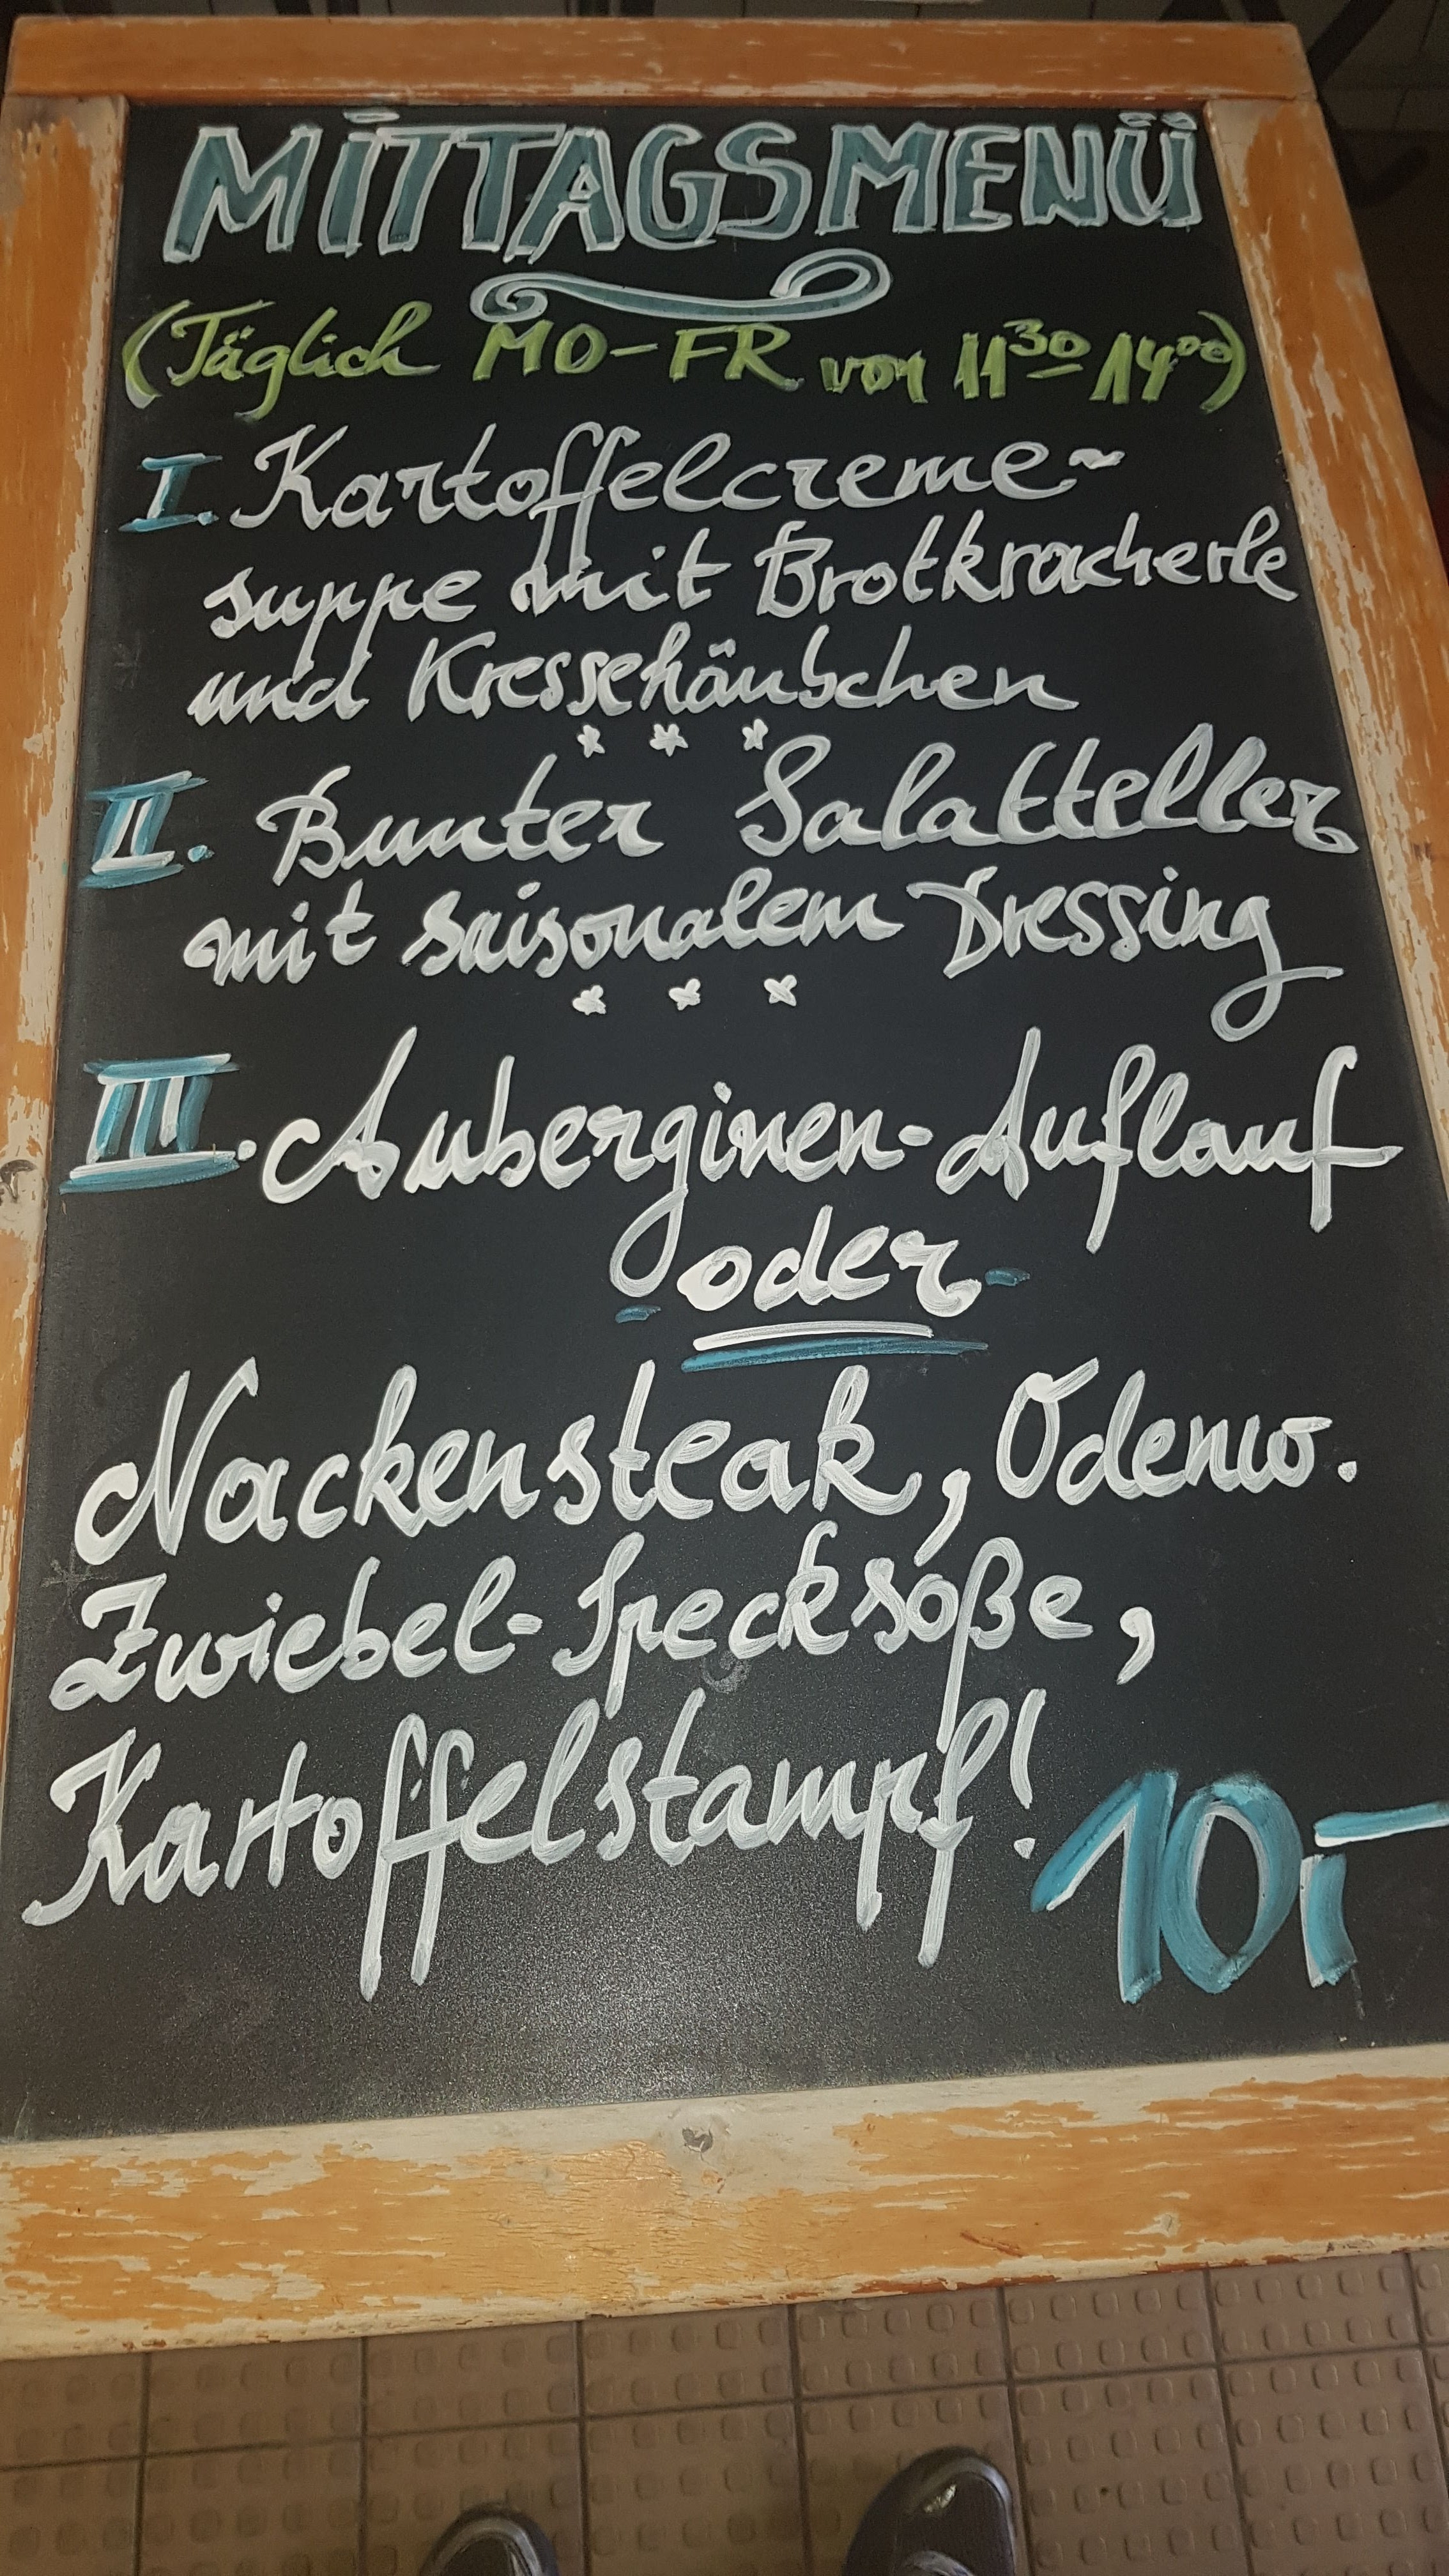 MITTAGSMENÜ
(Täglich MO-FR von 11³⁰-14⁰⁰)
I. Kartoffelcreme-
suppe mit Brotkracherle
und Kressehäubchen
* * *
II. Bunter Salatteller
mit saisonalem Dressing
* * *
III. Auberginen-Auflauf
- oder -
Nackensteak, Odenw.
Zwiebel-Specksoße,
Kartoffelstampf!
10,-